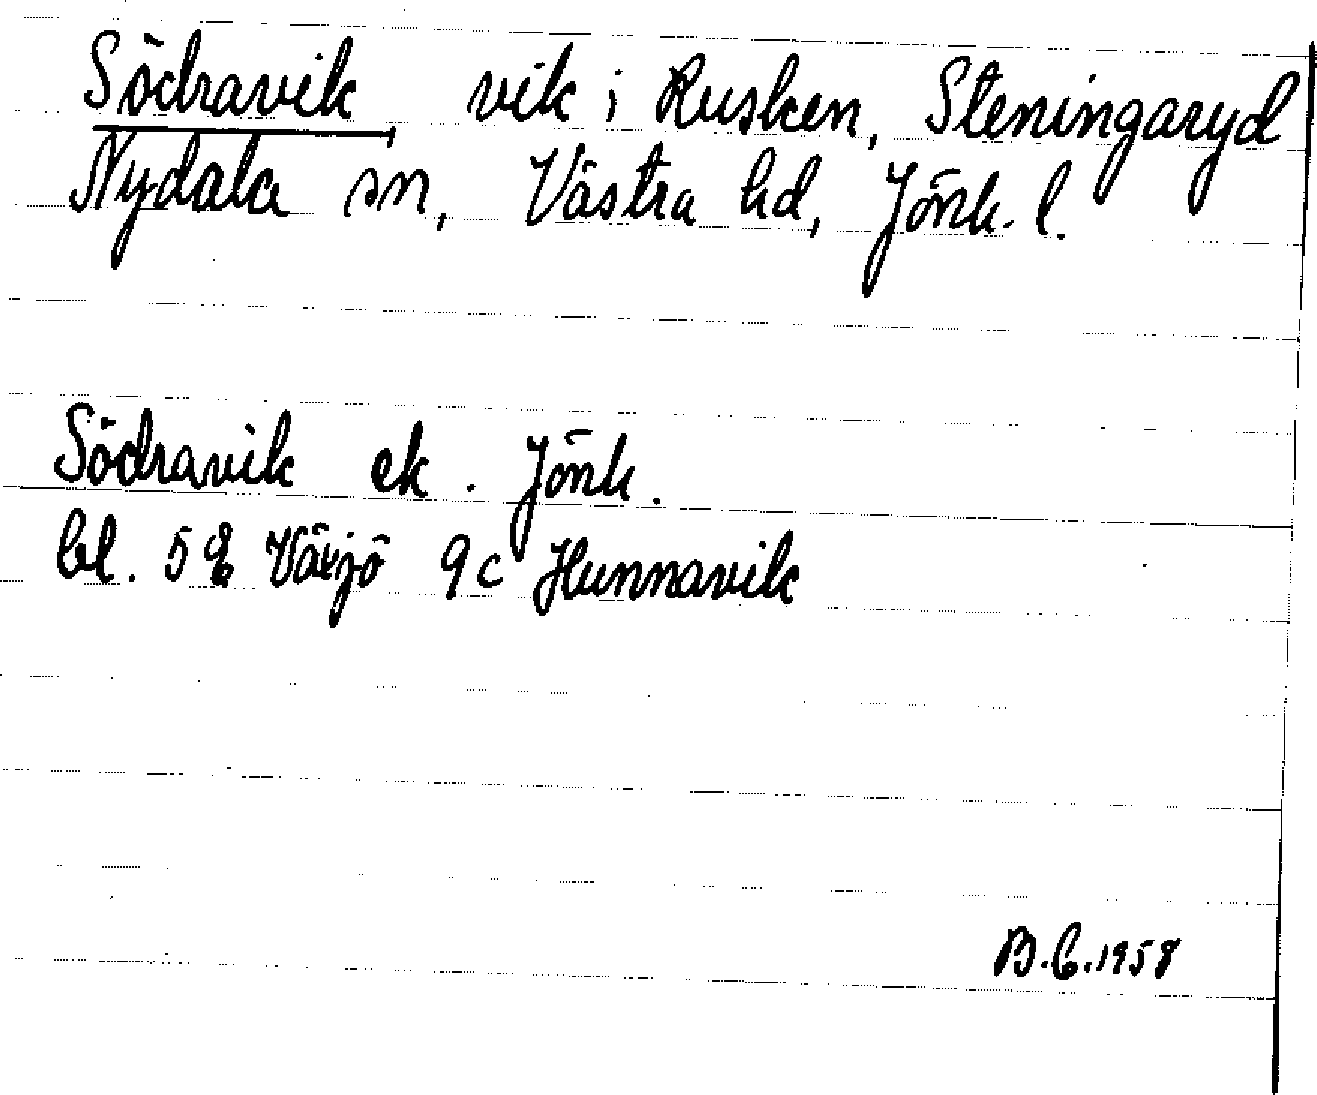 Södravik, vik i Rusken, Steningaryd
Nydala sn, Västra hd, Jönk. l.
Södravik ek. Jönk.
bl. 5 E Växjö 9c Hunnavik
B.C. 1958